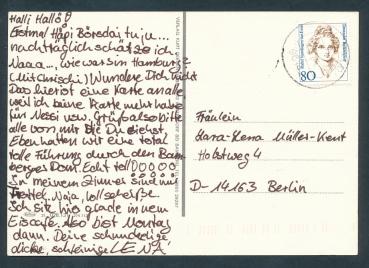 Halli Hallo!
Erstma' Häpi Börsdai tu ju...
nachträglich schätze ich
Naaa... wie war's in Hamburg?
(Mit Chrischi) Wundere Dich nicht
Das hier ist eine Karte an alle
weil ich keine Karte mehr habe
für Nessi usw. Grüß also bitte
alle von mir die Du siehst.
Eben hatten wir eine total
tolle Führung durch den Bam
berger Dom. Echt toll
In meinem Zimmer sind nur
Naja, voll scheiße.
Ich sitz hier grade in nem
Eiscafe. Also bis Montag
dann. Deine schmuddelige
dicke, schleimige LENA!
80
Fräulein
Lara-Lena Müller-Kent
Holstweg 4
D-14163 Berlin